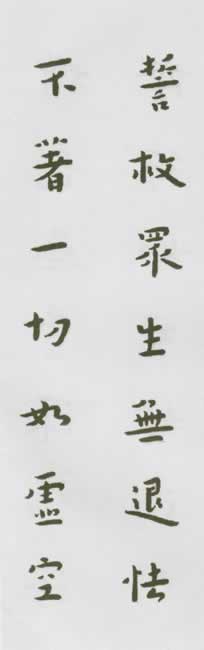 誓救眾生無退怯
不著一切如虛空